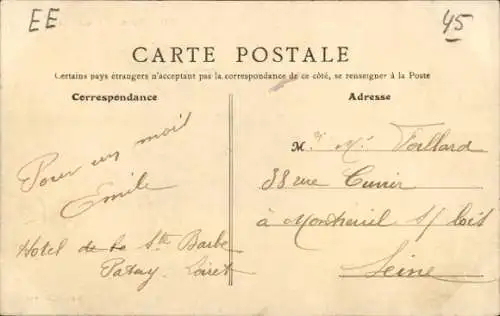 EE
45
CARTE POSTALE
Certains pays étrangers n'acceptant pas la correspondance de ce côté, se renseigner à la Poste
Correspondance
Adresse
Pour un mois
Emile
Hotel de la Ste Barbe
Patay. Loiret
M. Mr
38 rue Cuvier
à Montreuil s/ bois
Seine